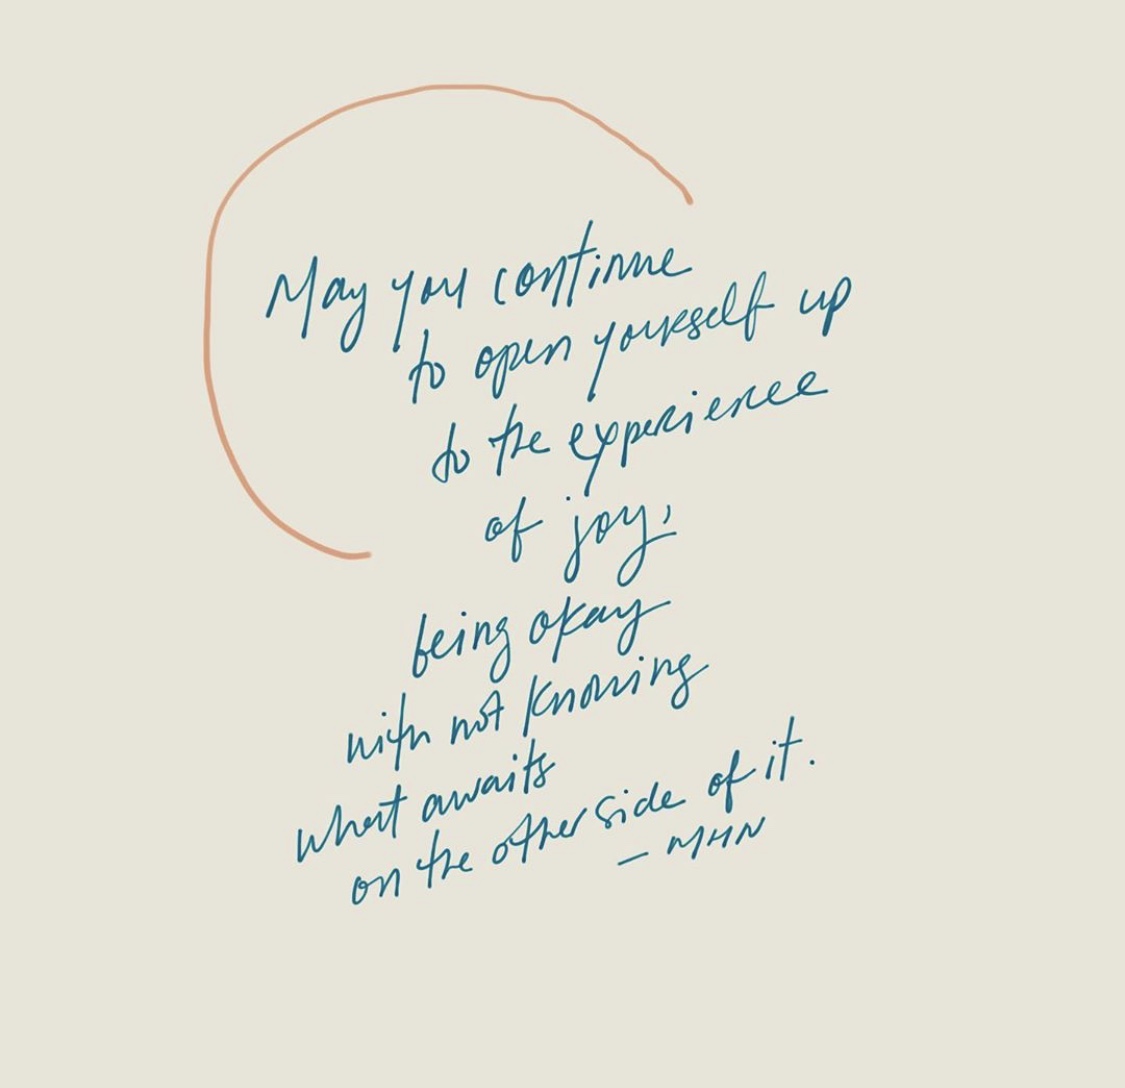 May you continue
to open yourself up
to the experience
of joy,
being okay
with not knowing
what awaits
on the other side of it.
– MHN